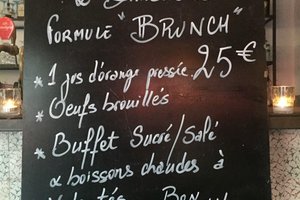 Formule "Brunch"
25€
* 1 jus d'orange pressée
* Oeufs brouillés
* Buffet Sucré/Salé
& boissons chaudes à